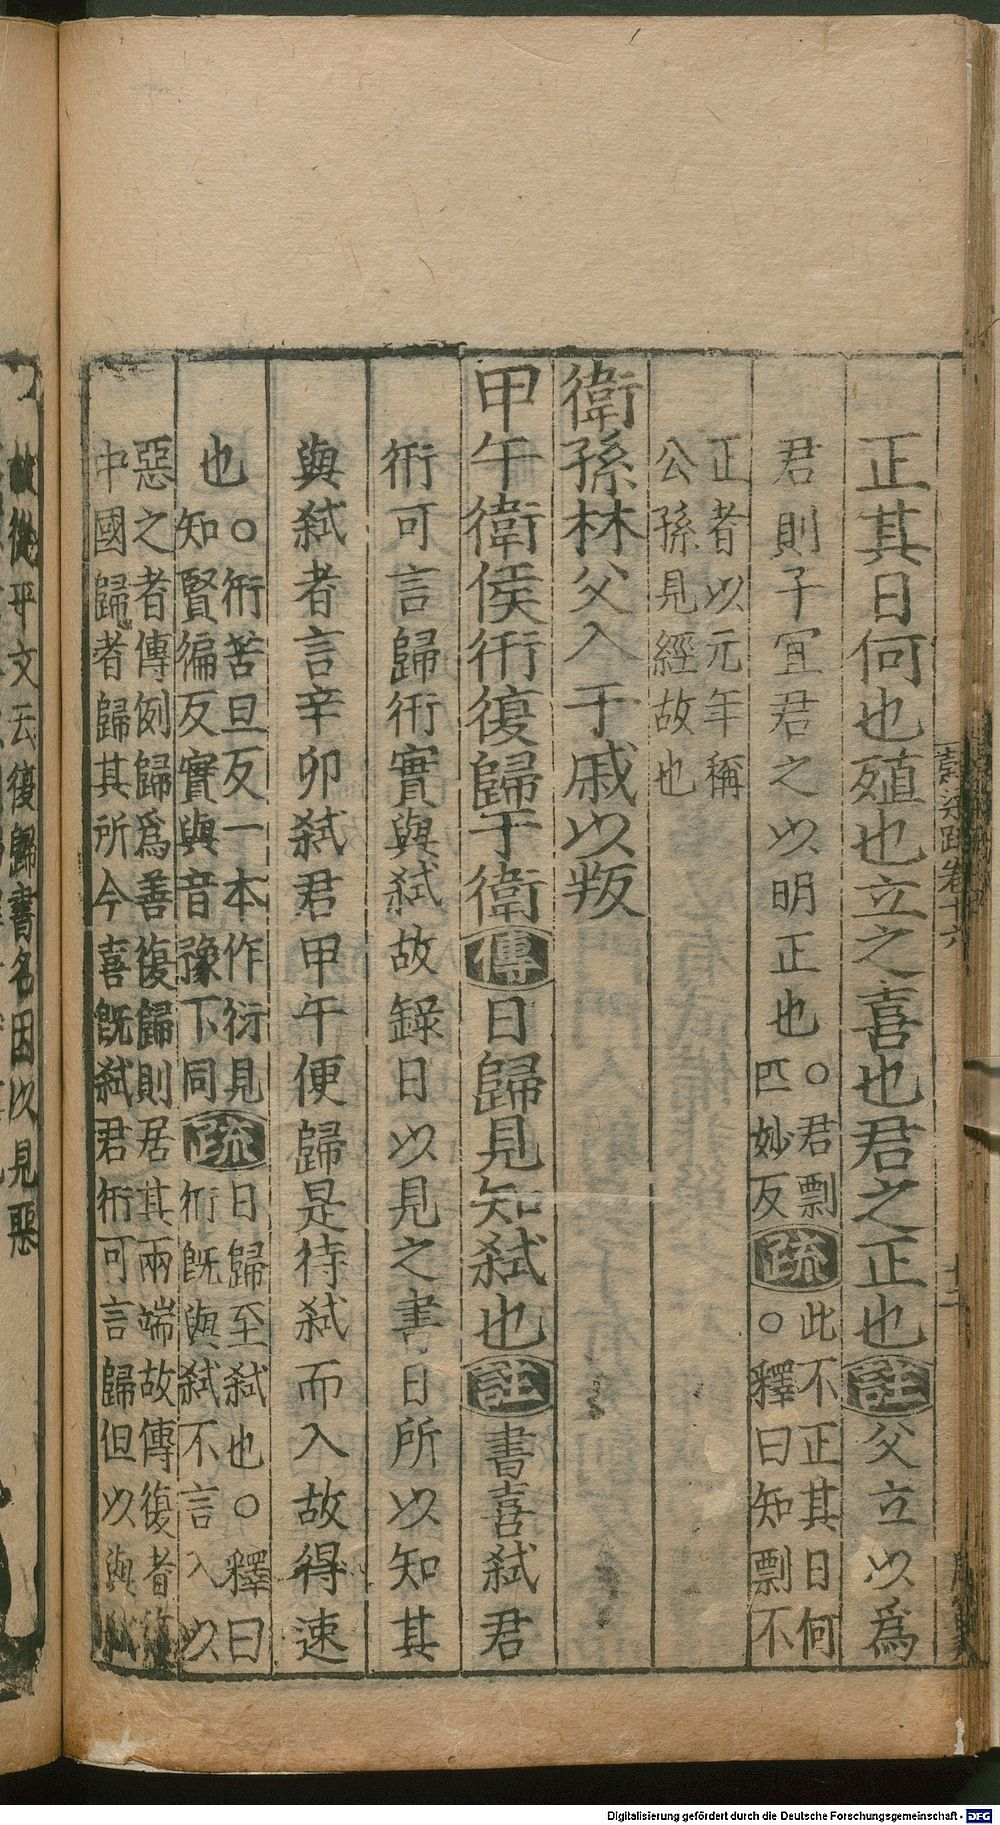 正其日何也殖也立之喜也君之正也註父立以爲
君則子宜君之以明正也○君剽
匹妙反疏此不正其日何
○釋曰知剽不
正者以元年稱
公孫見經故也
衛孫林父入于戚以叛
甲午衛侯衎復歸于衛傳日歸見知弑也註書喜弑君
衎可言歸衎實與弑故錄日以見之書日所以知其
與弑者言辛卯弑君甲午便歸是待弑而入故得速
也○衎苦旦反一本作衍見
知賢徧反實與音豫下同疏日歸至弑也○釋曰
衎既與弑不言入以
惡之者傳例歸爲善復歸則居其兩端故傳復者
中國歸者歸其所今喜既弑君衎可言歸但以與
故從平文云復歸書名因以見惡
卷十六
十二
Digitalisierung gefördert durch die Deutsche Forschungsgemeinschaft - DFG